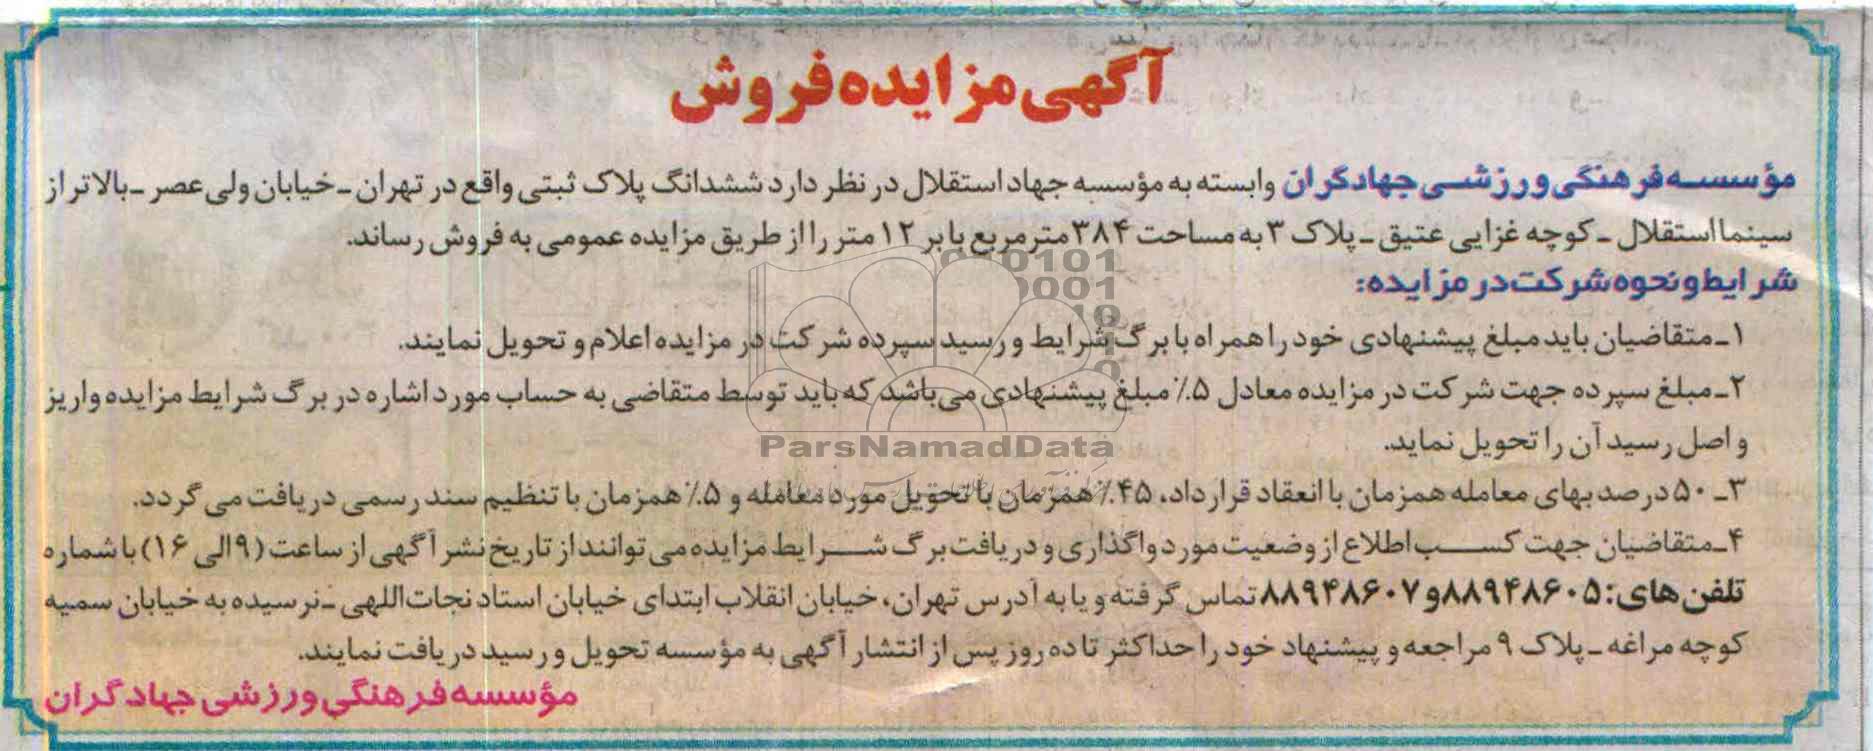 آگهی مزایده فروش
مؤسسه فرهنگی ورزشی جهادگران وابسته به مؤسسه جهاد استقلال در نظر دارد ششدانگ پلاک ثبتی واقع در تهران ـ خیابان ولی عصر ـ بالاتر از
سینما استقلال ـ کوچه غزایی عتیق ـ پلاک ۳ به مساحت ۳۸۴ مترمربع با بر ۱۲ متر را از طریق مزایده عمومی به فروش رساند.
شرایط و نحوه شرکت در مزایده:
۱ـ متقاضیان باید مبلغ پیشنهادی خود را همراه با برگ شرایط و رسید سپرده شرکت در مزایده اعلام و تحویل نمایند.
۲ـ مبلغ سپرده جهت شرکت در مزایده معادل ۵٪ مبلغ پیشنهادی می‌باشد که باید توسط متقاضی به حساب مورد اشاره در برگ شرایط مزایده واریز
و اصل رسید آن را تحویل نماید.
۳ـ ۵۰ درصد بهای معامله همزمان با انعقاد قرارداد، ۴۵٪ همزمان با تحویل مورد معامله و ۵٪ همزمان با تنظیم سند رسمی دریافت می گردد.
۴ـ متقاضیان جهت کسب اطلاع از وضعیت مورد واگذاری و دریافت برگ شرایط مزایده می توانند از تاریخ نشر آگهی از ساعت (۹ الی ۱۶) با شماره
تلفن های: ۸۸۹۴۸۶۰۵ و ۸۸۹۴۸۶۰۷ تماس گرفته و یا به آدرس تهران، خیابان انقلاب ابتدای خیابان استاد نجات‌اللهی ـ نرسیده به خیابان سمیه
کوچه مراغه ـ پلاک ۹ مراجعه و پیشنهاد خود را حداکثر تا ده روز پس از انتشار آگهی به مؤسسه تحویل و رسید دریافت نمایند.
مؤسسه فرهنگی ورزشی جهادگران
ParsNamadData